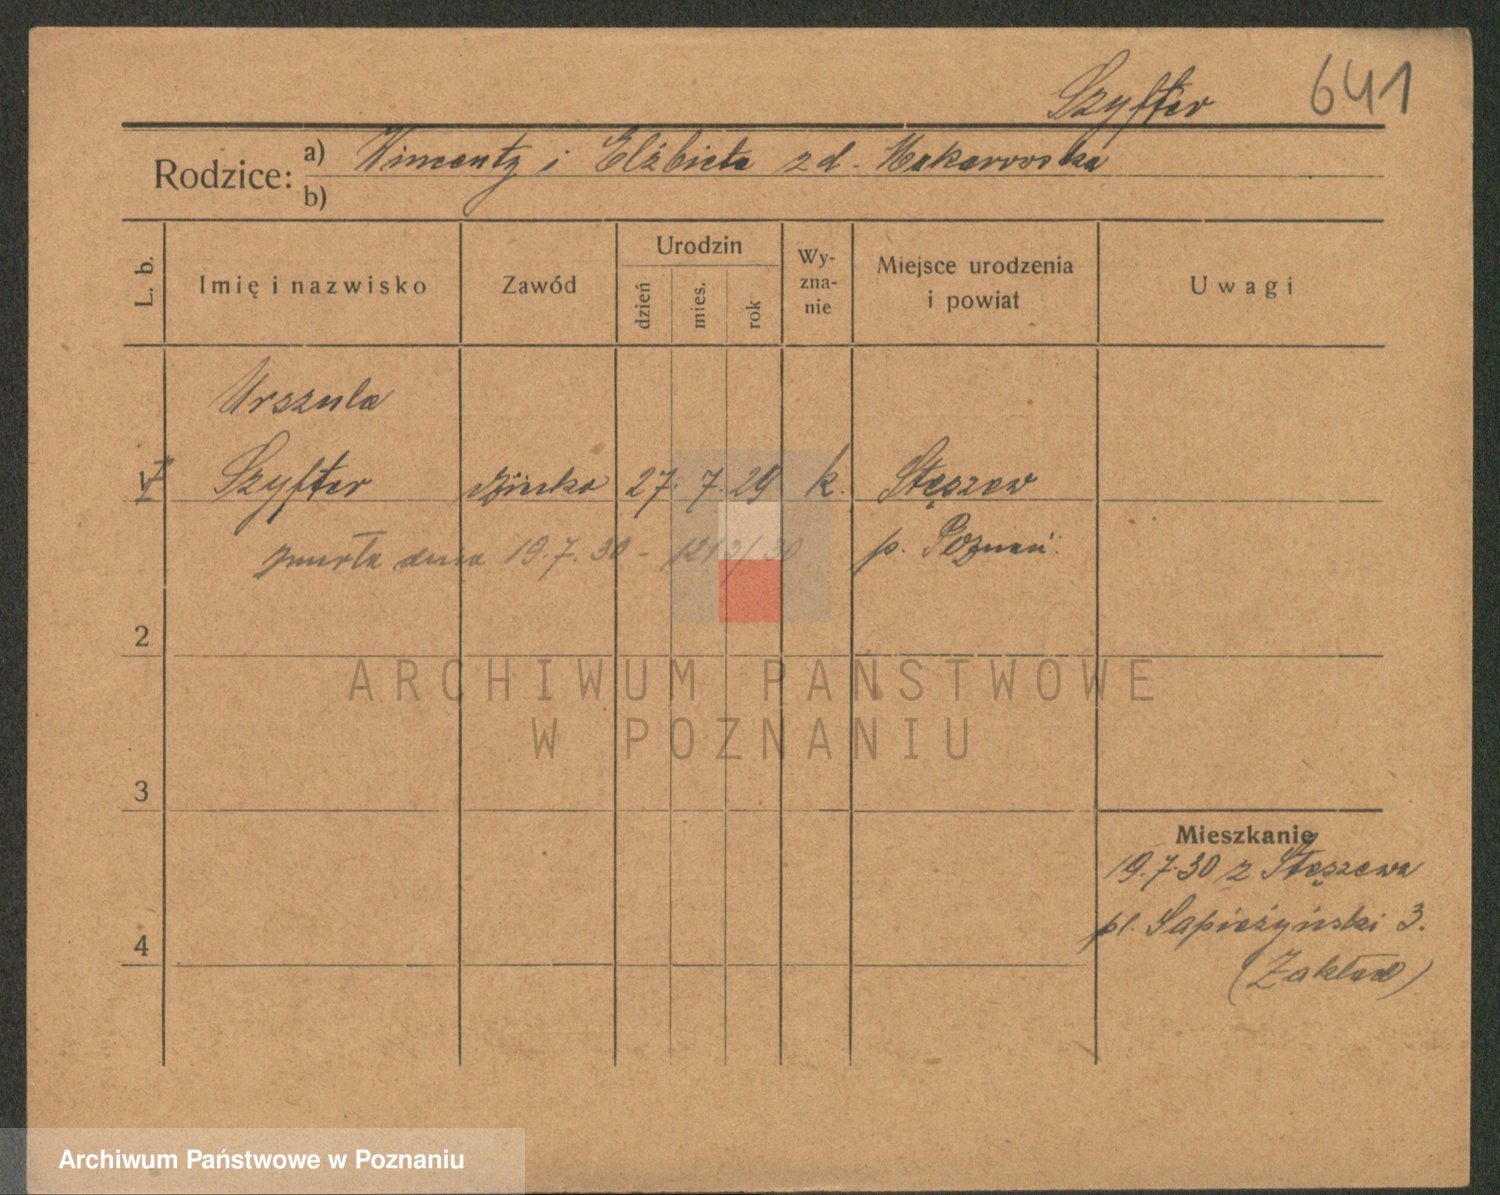 Szyfter 641
Rodzice: a) Wincenty i Elżbieta z d. Makarowska
b)
L. b. Imię i nazwisko Zawód Urodzin dzień mies. rok Wyznanie Miejsce urodzenia i powiat Uwagi
Urszula
Szyfter dziecko 27. 7. 29 k. Stęszew
zmarła dnia 19.7.30 - 1213/30. p. Poznań.
2
3
Mieszkanie
19.7.30 z Stęszewa
pl. Sapieżyński 3.
4
(Zakład)
ARCHIWUM PAŃSTWOWE
W POZNANIU
Archiwum Państwowe w Poznaniu